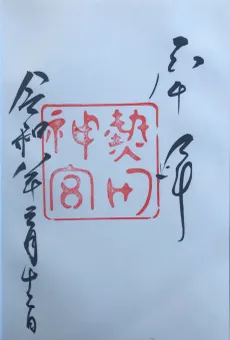 奉拝
熱田
神宮
令和年月十日